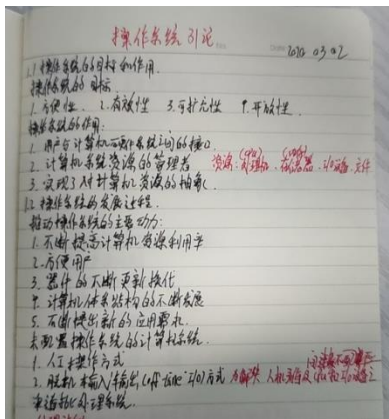 操作系统引论
DATE 2020 03 02
1.1 操作系统的目标和作用.
操作系统的目标
1. 方便性. 2. 有效性 3. 可扩充性 4. 开放性.
操作系统的作用:
1. 用户与计算机硬件系统之间的接口
2. 计算机系统资源的管理者 资源: 处理机、存储器、I/O设备、文件
3. 实现了对计算机资源的抽象
1.2 操作系统的发展过程.
推动操作系统的主要动力:
1. 不断提高计算机资源利用率
2. 方便用户
3. 器件的不断更新换代
4. 计算机体系结构的不断发展
5. 不断提出新的应用需求.
未配置操作系统的计算机系统.
1. 人工操作方式
2. 脱机输入/输出(off-line I/O)方式 为解决 人机矛盾及
单道批处理系统.